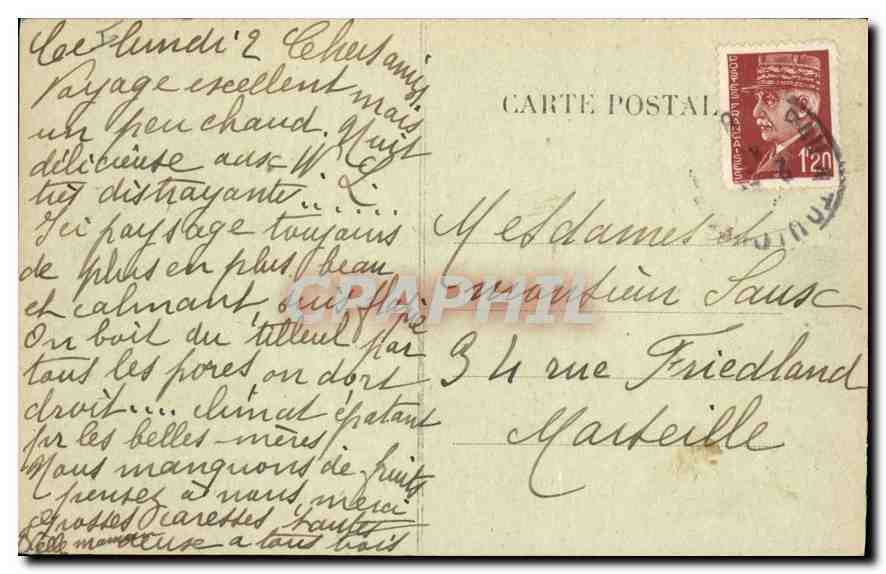 Ce lundi 2 Chers amis
Voyage excellent mais
un peu chaud. Nuit
délicieuse aux W.C.
très distrayante......
Ici paysage toujours
de plus en plus beau
et calmant,
On boit du tilleul par
tous les pores, on dort
droit.... climat épatant
pr les belles-mères,
Nous manquons de fruits
pensez à nous, merci
grosses caresses
à tous trois
CARTE POSTALE
POSTES FRANÇAISES
1F20
Mesdames et
monsieur Saux
34 rue Friedland
Marseille
CPAPHIL